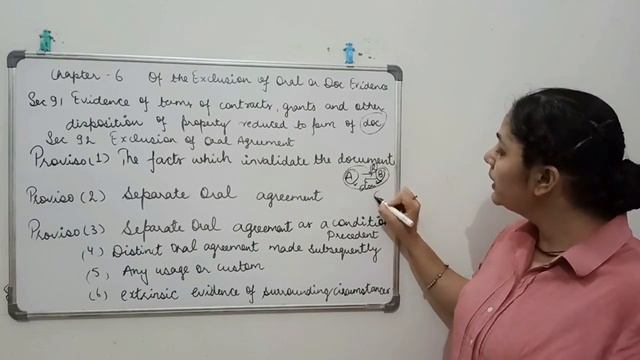 Chapter - 6 Of the Exclusion of Oral or Doc Evidence
Sec 91 Evidence of terms of contracts, grants and other
disposition of property reduced to form of doc
Sec 92 Exclusion of Oral Agreement
Proviso (1) The facts which invalidate the document
A B
Proviso (2) Separate Oral agreement
Proviso (3) Separate Oral agreement as a condition
Precedent
(4) Distinct Oral agreement made subsequently
(5) Any usage or custom
(6) extrinsic evidence of surrounding circumstances